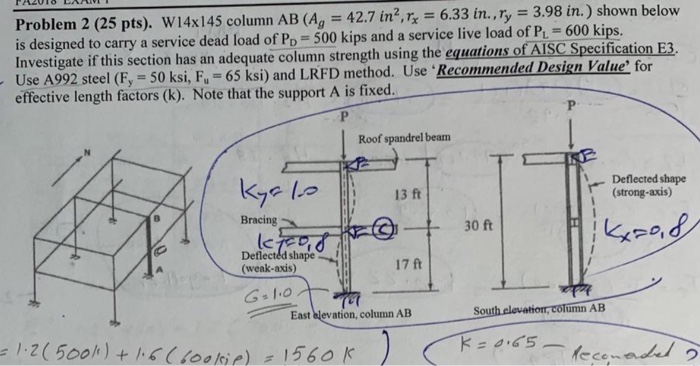 Problem 2 (25 pts). W14x145 column AB (Ag = 42.7 in², rx = 6.33 in., ry = 3.98 in.) shown below
is designed to carry a service dead load of PD = 500 kips and a service live load of PL = 600 kips.
Investigate if this section has an adequate column strength using the equations of AISC Specification E3.
Use A992 steel (Fy = 50 ksi, Fu = 65 ksi) and LRFD method. Use ‘Recommended Design Value’ for
effective length factors (k). Note that the support A is fixed.
P
P
Roof spandrel beam
N
Ky = 1.0
13 ft
Deflected shape
(strong-axis)
B
Bracing
C
30 ft
Kx=0,8
Ky=0,8
Deflected shape
(weak-axis)
17 ft
A
G=1.0
East elevation, column AB
South elevation, column AB
= 1.2(500k) + 1.6(600kip) = 1560 K
K = 0.65 –